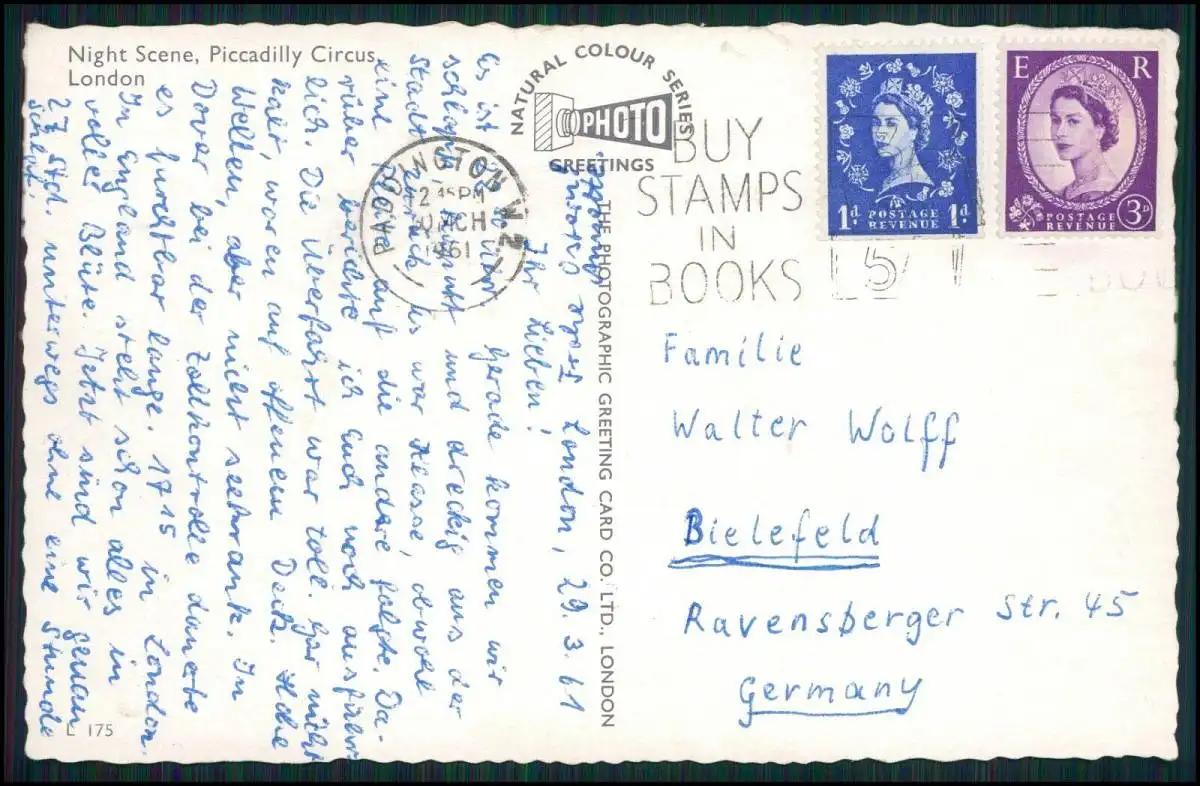 Night Scene, Piccadilly Circus,
London
NATURAL COLOUR SERIES
PHOTO
GREETINGS
PADDINGTON W.2
2 45 PM
30 MCH
1961
BUY
STAMPS
IN
BOOKS
1d POSTAGE REVENUE 1d
E R
POSTAGE REVENUE 3D
London, 29.3.61
Ihr Lieben!
Es ist Uhr. Gerade kommen wir
und dreckig aus der
Stadt zurück. Es war Klasse, obwohl
eine Pleite auf die andere folgte. Da-
rüber berichte ich Euch noch ausführ-
lich. Die Überfahrt war toll. Gar nicht
kalt, waren auf offenem Deck. Hohe
Wellen, aber nicht seekrank. In
Dover bei der Zollkontrolle dauerte
es furchtbar lange. 17 15 in London.
In England steht schon alles in
voller Blüte. Jetzt sind wir genau
27 Std. unterwegs ohne eine Stunde
Schlaf.
THE PHOTOGRAPHIC GREETING CARD CO. LTD., LONDON
Familie
Walter Wolff
Bielefeld
Ravensberger Str. 45
Germany
L 175